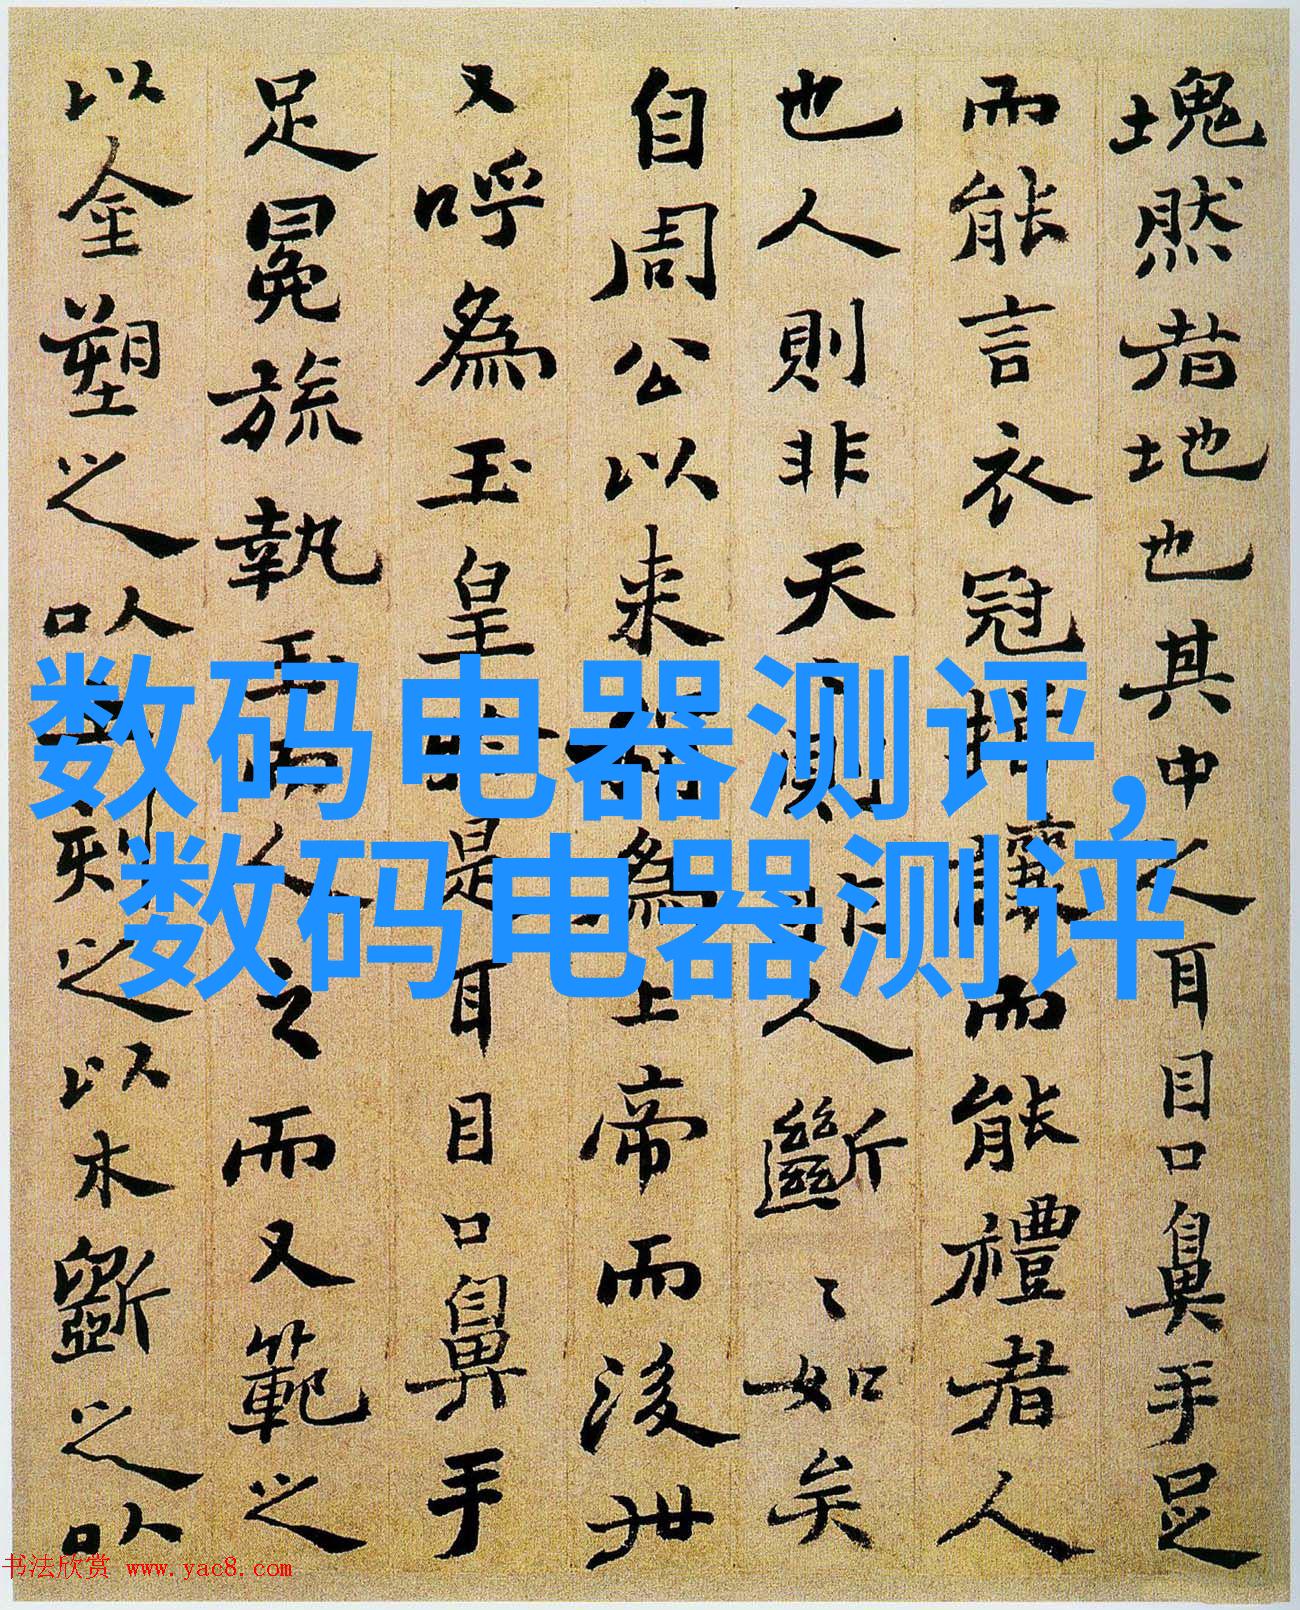 塊然者地也其中人耳目口鼻手足
而能言衣冠揖讓而能禮者人
也人則非天則非人斷〻如矣
自周公以来稱為上帝而後世
又呼為玉皇於是耳目口鼻手
足冕旒執玉而人之而又範之
以金塑之以土刻之以木斲之以
数码电器测评,
数码电器测评
书法欣赏 www.yac8.com